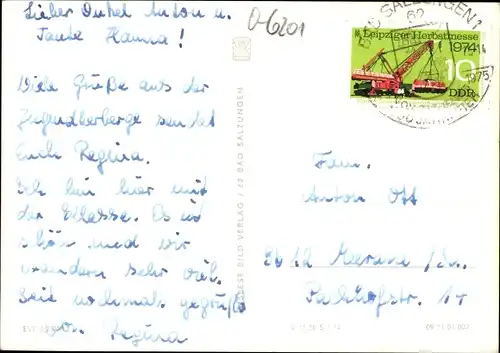 Lieber Onkel Anton u.
Tante Hanna!
Viele Grüße aus der
Jugendherberge sendet
Euch Regina.
Ich bin hier mit
der Classe. Es ist
schön und wir
wandern sehr viel.
Seid nochmals gegrüßt
von Regina
O-6201
BILD VERLAG / 62 BAD SALZUNGEN
BAD SALZUNGEN 1
62
1975
Leipziger Herbstmesse
1974
10
DDR
Fam.
Anton Ott
Merane / Sa.